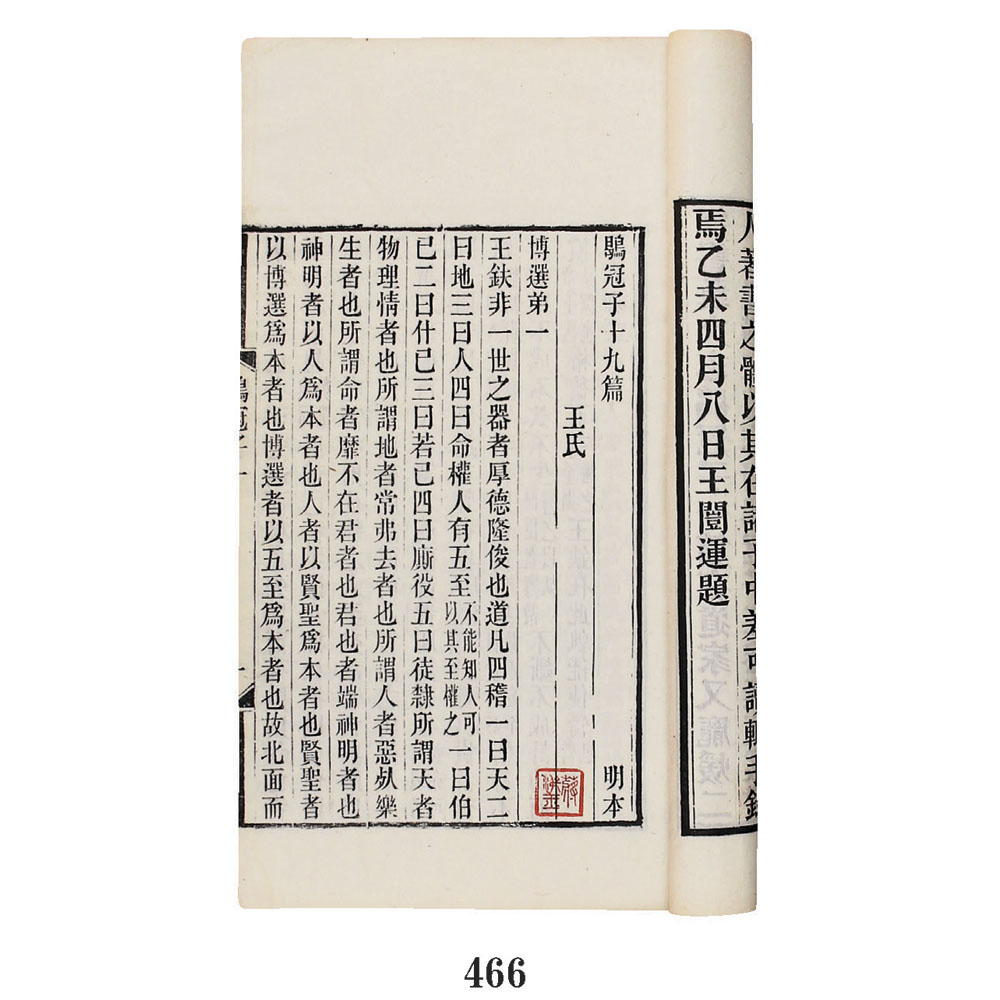 著書之體以其在諸子中差可讀輒手錄
焉乙未四月八日王闓運題
鶡冠子十九篇 明本
王氏
博選弟一
王鈇非一世之器者厚德隆俊也道凡四稽一曰天二
曰地三曰人四曰命權人有五至不能知人可以其至權之一曰伯
已二曰什已三曰若已四曰廝役五曰徒隸所謂天者
物理情者也所謂地者常弗去者也所謂人者惡死樂
生者也所謂命者靡不在君者也君也者端神明者也
神明者以人爲本者也人者以賢聖爲本者也賢聖者
以博選爲本者也博選者以五至爲本者也故北面而
466